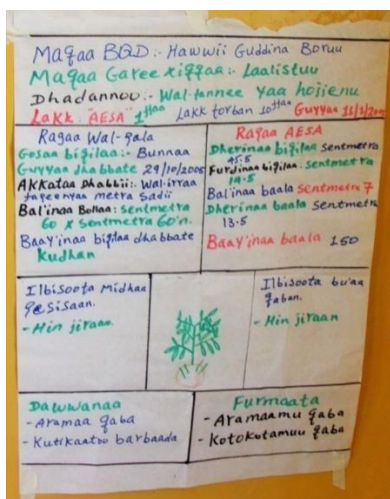 Maqaa BQD:- Hawwii Guddina Boruu
Maqaa Garee xiqqaa:- Laalistuu
Dhadannoo:- Wal-tannee yaa hojjennu
Lakk "AESA" 1ffaa Lakk torban 10ffaa Guyyaa
Ragaa Wal-gala
Gosaa biqilaa:- Bunnaa
Guyyaa dhabbate 29/10/2005
Akkataa Dhabbii:- Wal-irraa
fageenyaa metra Sadii
Bal'inaa Bollaa: sentmetra
60 x sentmetra 60'n.
Baay'inaa biqilaa dhabbate
Kudhan
Ragaa AESA
Dherinaa biqilaa sentmetra
45.5
Furdinaa biqilaa: sentmetra
Bal'inaa baala sentmetra 7
Dherinaa baala sentmetra
13.5
Baay'inaa baala 150
Ilbisoota Midhaa
-Hin jiraan.
Ilbisoota bu'aa
qaban.
-Hin jiraan
Dawwanaa
- Aramaa qaba
- Kutikaatoo barbaada
Furmaata
- Aramaamu qaba
- Kotokotamuu qaba